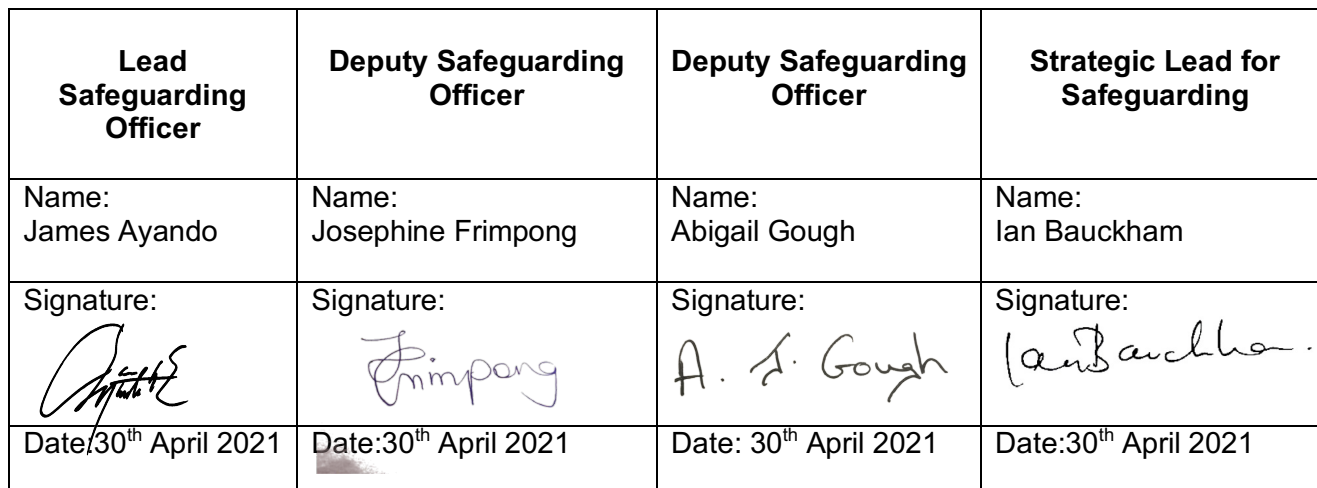 Lead
Safeguarding
Officer
Deputy Safeguarding
Officer
Deputy Safeguarding
Officer
Strategic Lead for
Safeguarding
Name:
James Ayando
Name:
Josephine Frimpong
Name:
Abigail Gough
Name:
Ian Bauckham
Signature:
Signature:
Frimpong
Signature:
A. J. Gough
Signature:
Ian Bauckham.
Date:30th April 2021
Date:30th April 2021
Date: 30th April 2021
Date:30th April 2021